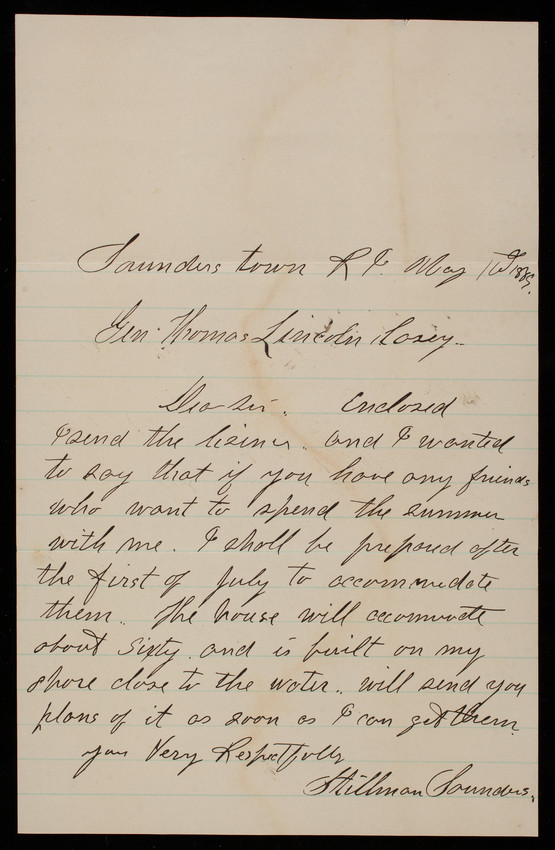 Saunders town R I. May 1889.
Gen. Thomas Lincoln Casey
Dear Sir. Enclosed
I send the lisence. and I wanted
to say that if you have any friends
who want to spend the summer
with me. I shall be prepared after
the first of July to accommedate
them. The house will accomodte
about sixty. and is built on my
shore close to the water. will send you
plans of it as soon as I can get them.
your Very Respectfully
Stillman Saunders.